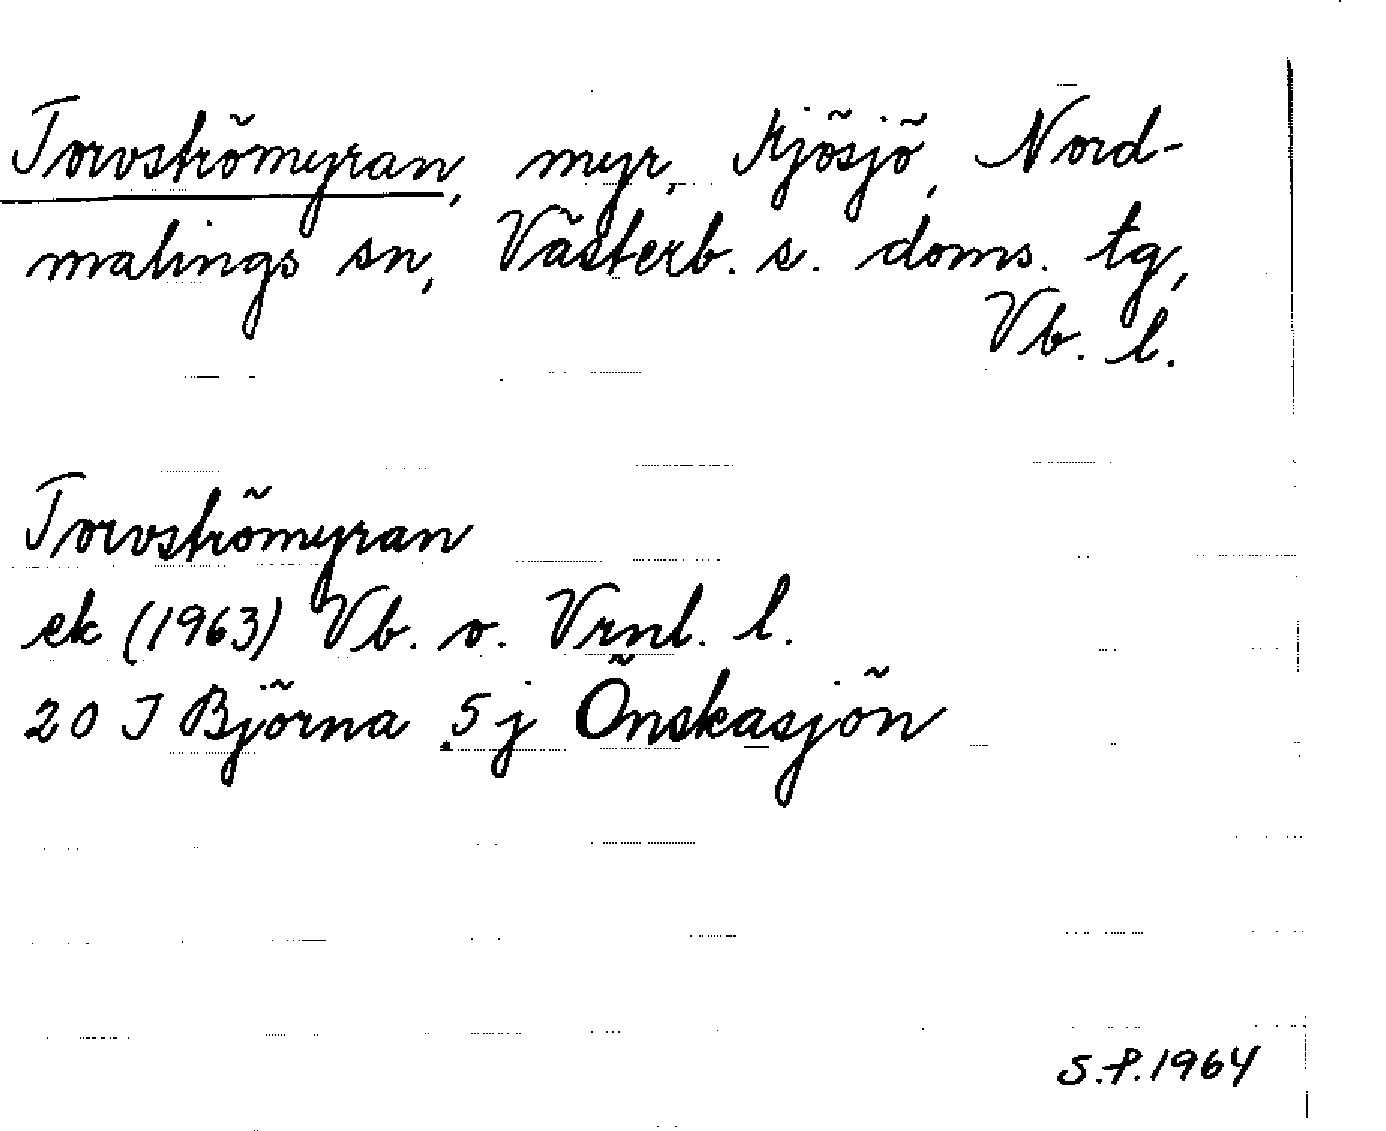 Torvströmyran, myr, Mjösjö, Nord-
malings sn, Västerb. s. doms. tg,
Vb. l.
Torvströmyran
ek (1963) Vb. o. Vrnl. l.
20 J Björna 5 j Önskasjön
S.P. 1964